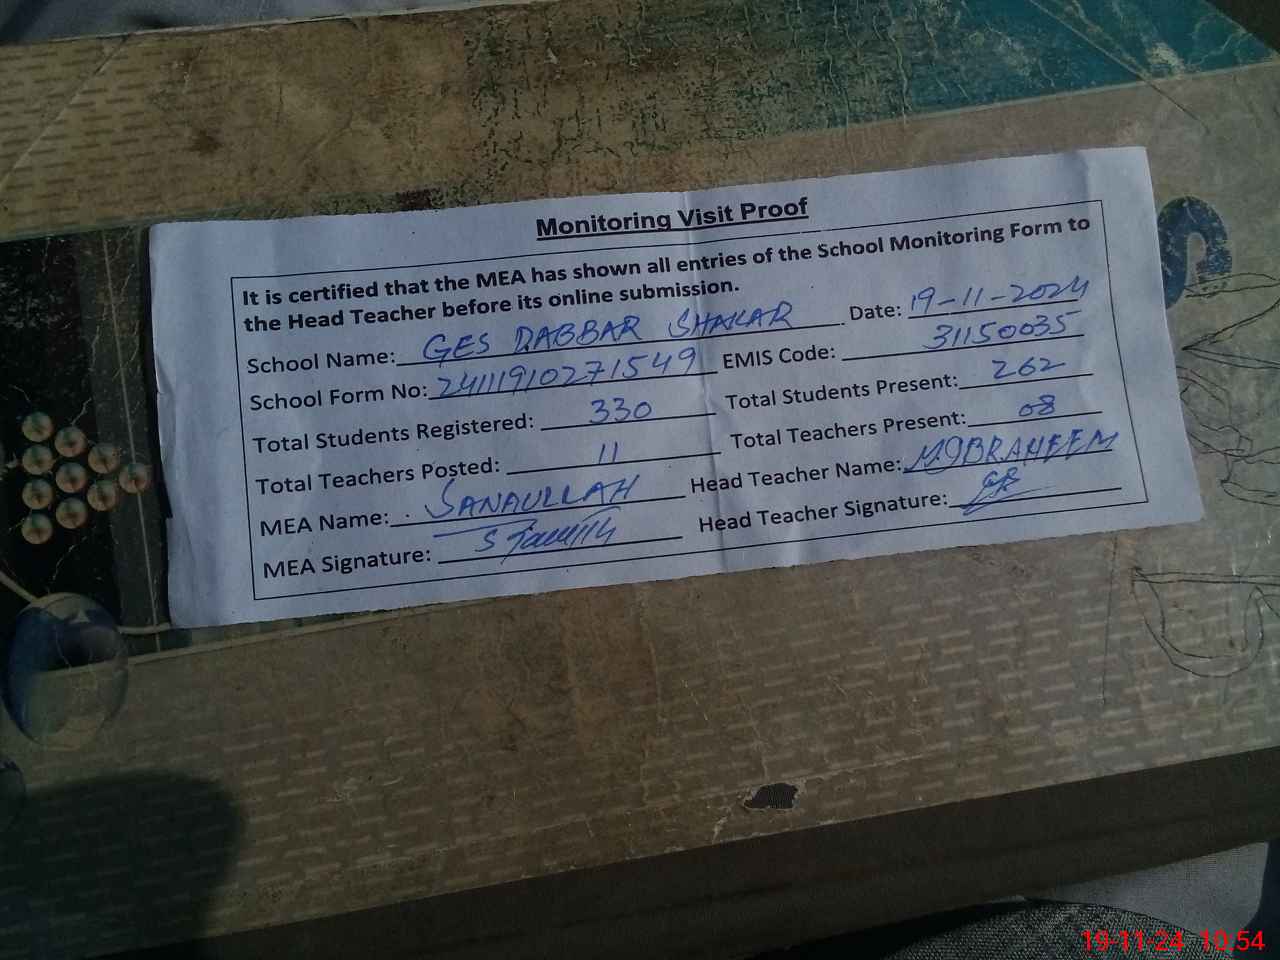 Monitoring Visit Proof
It is certified that the MEA has shown all entries of the School Monitoring Form to
the Head Teacher before its online submission.
School Name: GES DABBAR SHAKAR Date: 19-11-2024
School Form No: 24111910271549 EMIS Code: 31150035
Total Students Registered: 330 Total Students Present: 262
Total Teachers Posted: 11 Total Teachers Present: 08
MEA Name: SANAULLAH Head Teacher Name: M IBRAHEEM
MEA Signature: Head Teacher Signature:
19-11-24 10:54